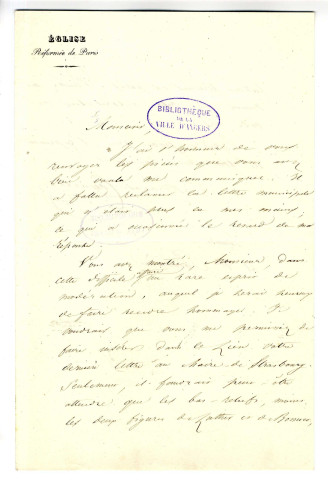 ÉGLISE
Réformée de Paris
BIBLIOTHÈQUE
DE LA
VILLE D'ANGERS
Monsieur,
J'ai l'honneur de vous
renvoyer les pièces que vous avez
bien voulu me communiquer. Il
a fallu réclamer la lettre municipale
qui n'était plus en mes mains,
ce qui a occasionné le retard de ma
réponse.
Vous avez montré, Monsieur dans
cette difficile affaire un rare esprit de
modération, auquel je serai heureux
de faire rendre hommage. Je
voudrais que vous me permissiez de
faire insérer dans le Lien votre
dernière lettre au Maire de Strasbourg.
Seulement, il faudrait peut-être
attendre que les bas-reliefs, moins
les deux figures de Luther et de Bossuet,